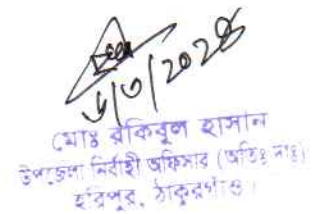 ৬/৩/২০২৪
মোঃ রকিবুল হাসান
উপজেলা নির্বাহী অফিসার (অতিঃ দাঃ)
হরিপুর, ঠাকুরগাঁও।